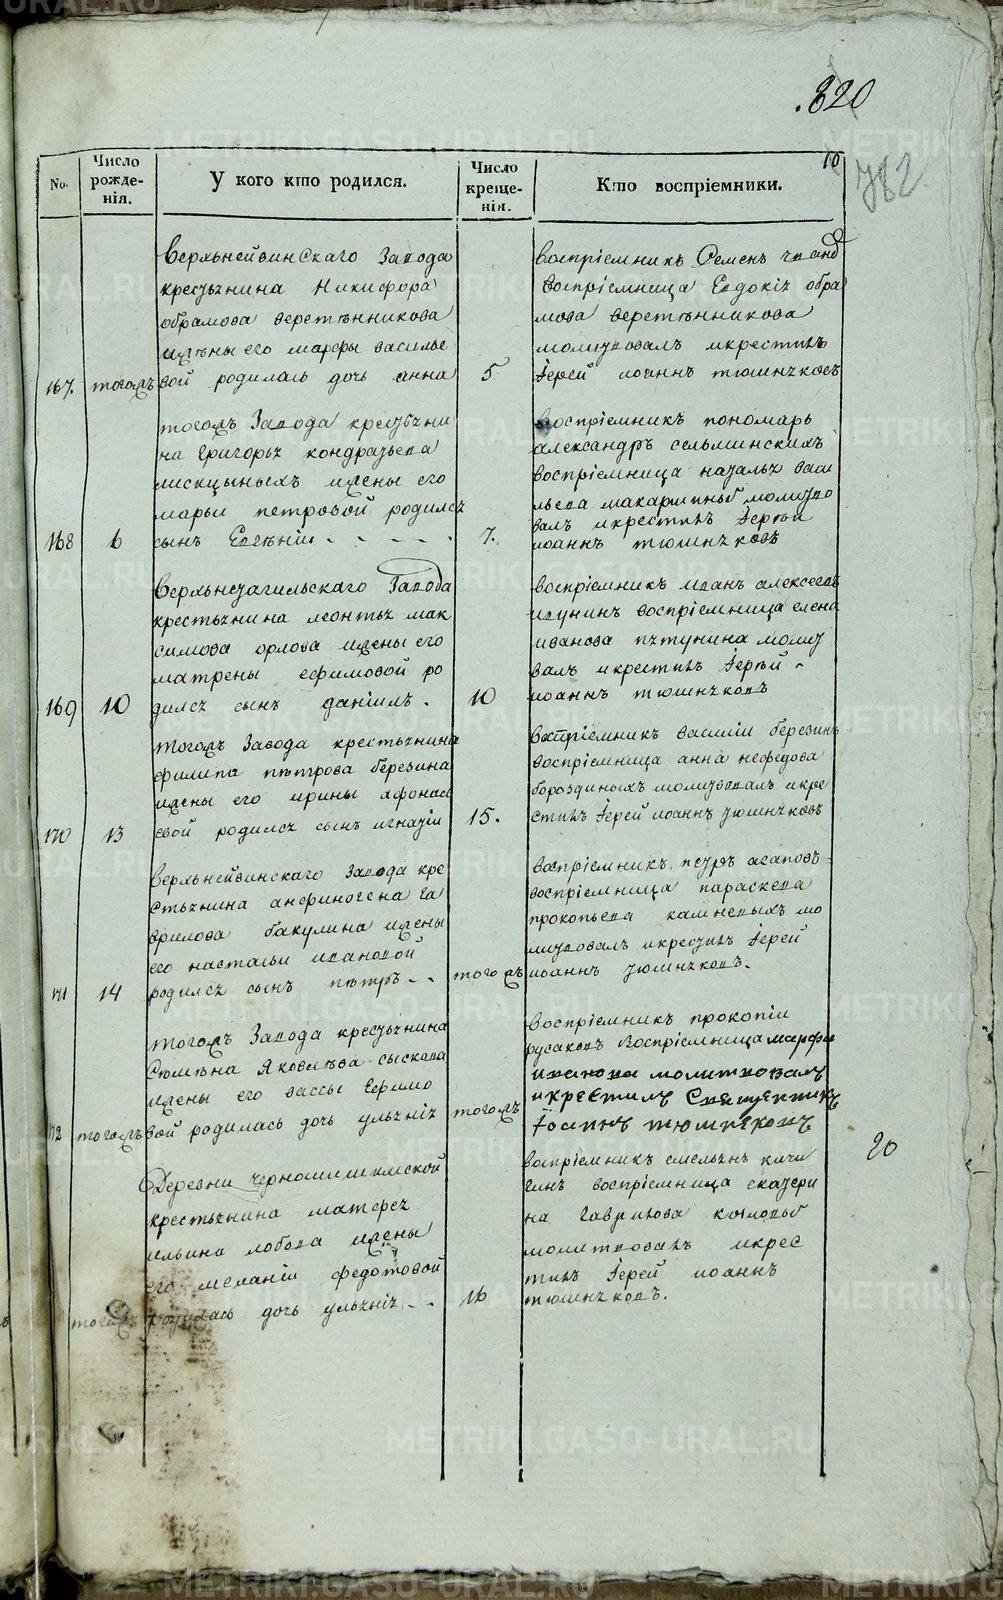 320
10
782
No.
Число рожде-нія.
У кого кто родился.
Число креще-нія.
Кто воспріемники.
верхнейвинскаго завода
крестьянина Никифора
обрамова веретѣнникова
ижены его марфы василье
167. тогожъ вой родилась дочь анна 5
воспріемникъ Семенъ
воспріемница Евдокія обра
мова веретѣнникова
молитвовалъ икрестилъ
іерей иоаннъ тюшняковъ
тогожъ Завода крестьяни
на григорья кондратьева
ижены его
марьи петровой родился
168 6 сынъ Евгѣній - - - - - 7.
воспріемникъ пономарь
александръ сельминскихъ
воспріемница наталья васи
льева молитво
валъ икрестилъ іерѣй
иоаннъ тюшняковъ
верхнетагильскаго Завода
крестьянина леонтья мак
симова орлова ижены его
матрены ефимовой ро
169 10 дился сынъ даніилъ. 10
воспріемникъ иванъ алексеевъ
воспріемница елена
иванова пятунина молит
валъ икрестилъ іерѣй
иоаннъ тюшняковъ
тогожъ Завода крестьянина
филипа пѣтрова березина
ижены его ирины афонась
170 13 евой родился сынъ игнатіи 15.
воспріемникъ василіи березинъ
воспріемница анна нефедова
бороздиныхъ молитвовалъ икре
стилъ іерей иоаннъ тюшняковъ
верхнейвинскаго Завода кре
стьянина анфиногена га
врилова бакулина ижены
его настасьи ивановой
171 14 родился сынъ пѣтръ - - тогожъ
воспріемникъ петръ агаповъ
воспріемница параскева
прокопьева каменныхъ мо
литвовалъ икрестилъ іерей
иоаннъ тюшняковъ.
тогожъ Завода крестьянина
Яковлѣва сыскова
ижены его вассы Ефимо
172 тогожъ вой родилась дочь ульянія тогожъ
воспріемникъ прокопіи
русаковъ воспріемница марфа
иванова молитвовалъ
икрестилъ Священникъ
Іоаннъ тюшняковъ
20
Деревни черношишимской
крестьянина
ильина лобова ижены
его меланіи федотовой
тогожъ родилась дочь ульянія - - 16
воспріемникъ емельянъ
воспріемница екатери
на гаврилова
молитвовалъ икрес
тилъ іерей иоаннъ
тюшняковъ.
METRIKI.GASO-URAL.RU